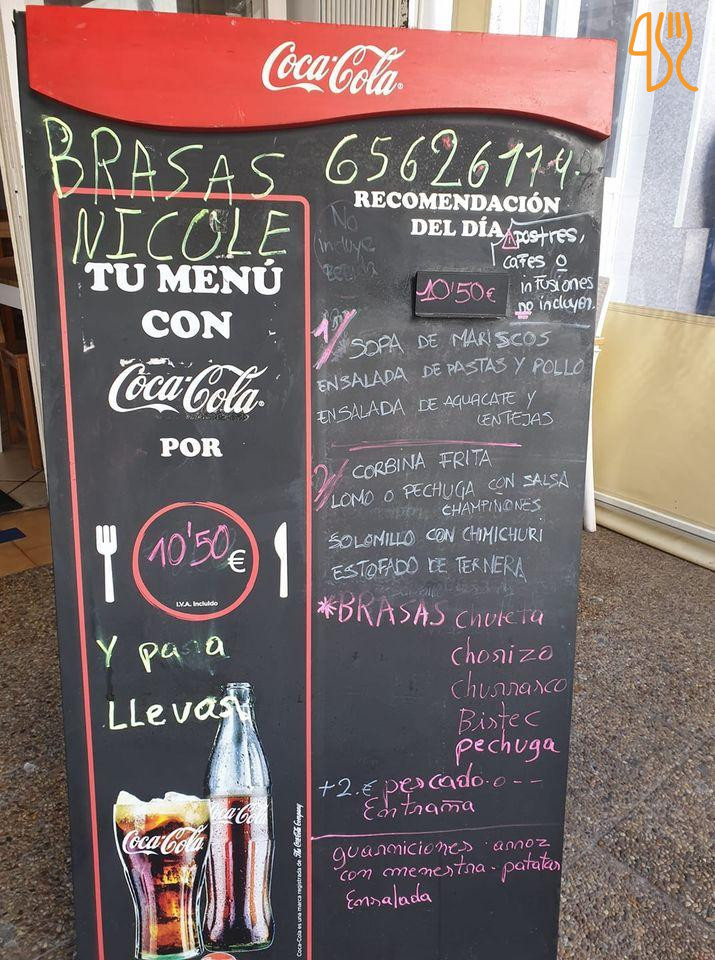 Coca-Cola
BRASAS
NICOLE
TU MENÚ
CON
Coca-Cola
POR
10'50 €
I.V.A. Incluido
Y para
LLevar
Coca-Cola
Coca-Cola
Coca-Cola es una marca registrada de The Coca-Cola Company
RECOMENDACIÓN
DEL DÍA
⚠ postres,
cafes o
infusiones
no incluyen.
No
incluye
bebida
10'50€
1/ SOPA DE MARISCOS
ENSALADA DE PASTAS Y POLLO
ENSALADA DE AGUACATE Y
LENTEJAS
2/ CORBINA FRITA
LOMO O PECHUGA CON SALSA
CHAMPIÑONES
SOLOMILLO CON CHIMICHURI
ESTOFADO DE TERNERA
*BRASAS chuleta
chorizo
churrasco
Bistec
pechuga
+2.€ pescado o --
Entraña
guarniciones . arroz
con menestra - patatas
Ensalada